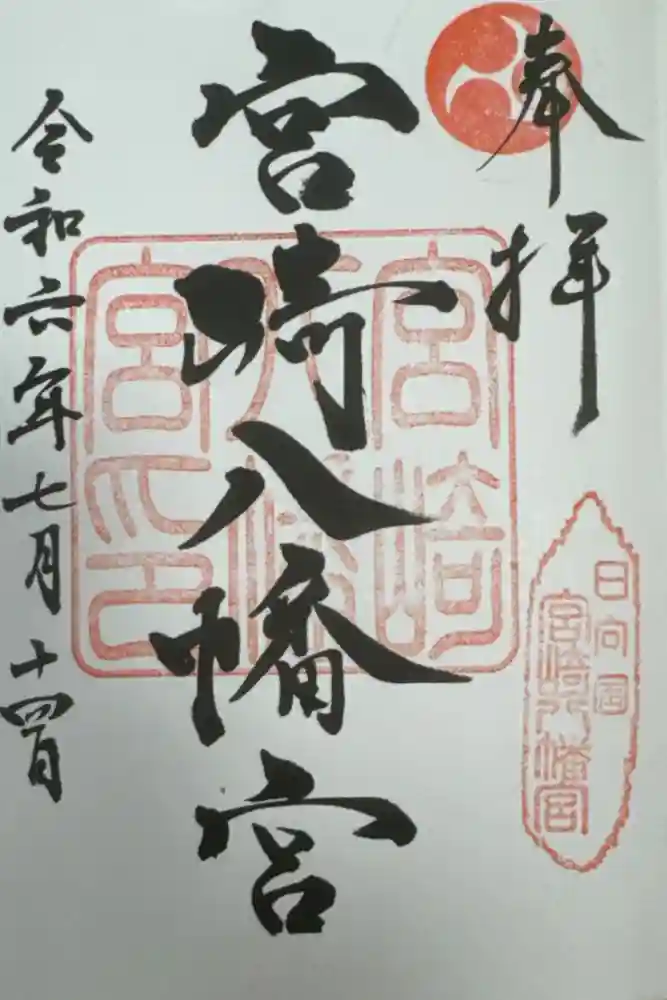 奉拝
日向国
宮崎八幡宮
宮崎八幡宮
宮崎八幡宮印
令和六年七月十四日